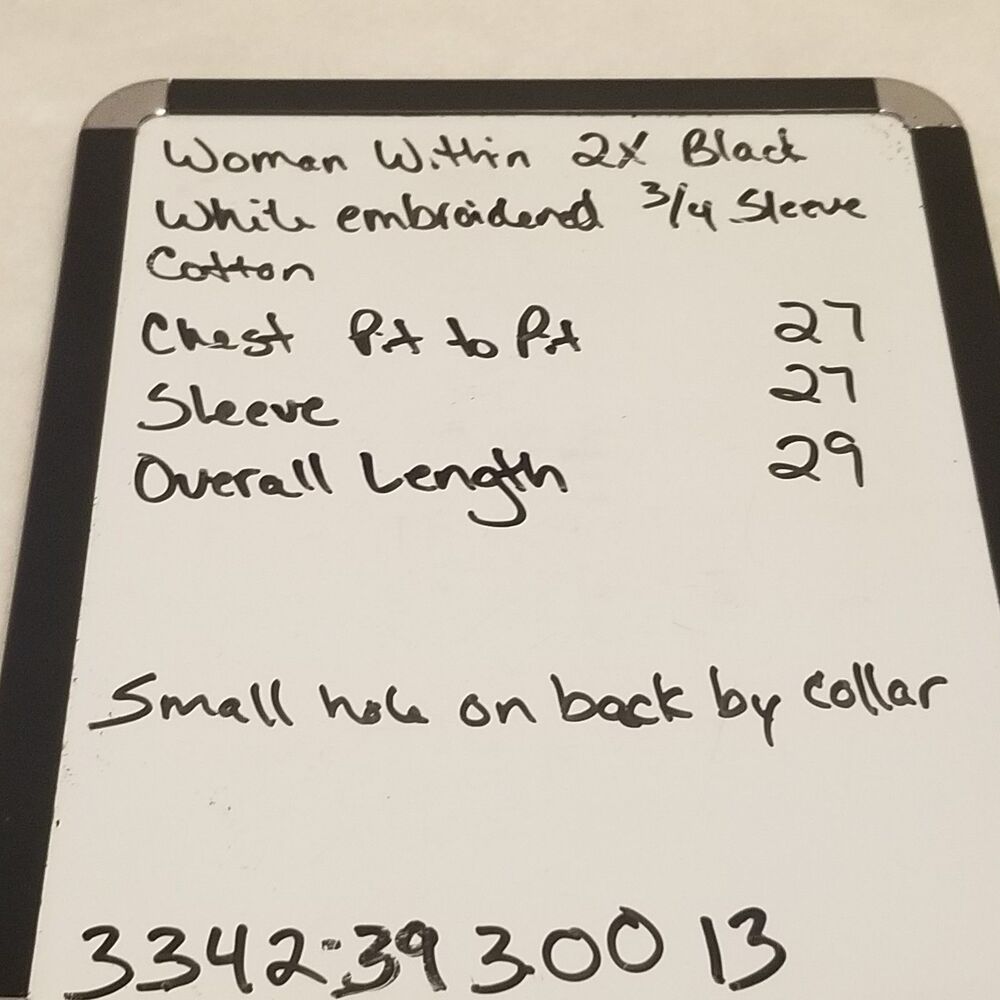 Woman Within 2X Black
White embroidered 3/4 Sleeve
Cotton
Chest Pit to Pit 27
Sleeve 27
Overall Length 29
Small hole on back by collar
3342-39 300 13